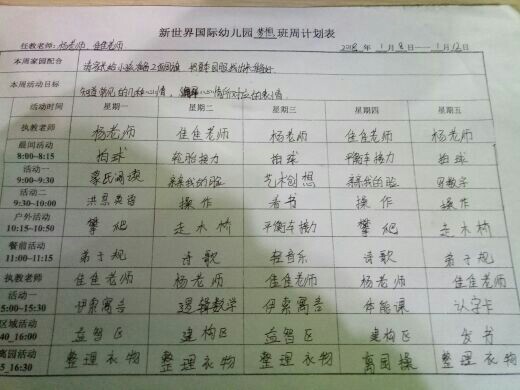 新世界国际幼儿园梦想班周计划表
任教老师：杨老师 佳佳老师 2018年1月8日——1月12日
本周家园配合
本周活动目标 知道常见的几种心情，心情所对应的表情
活动时间 星期一 星期二 星期三 星期四 星期五
执教老师 杨老师 佳佳老师 杨老师 佳佳老师 杨老师
晨间活动 8:00-8:15 拍球 轮胎接力 拍球 平衡车接力 拍球
活动一 9:00-9:30 蒙氏阅读 我的脸 艺术创想 我的脸 数字
活动二 9:30-10:00 洪恩英语 操作 看书 操作 操作
户外活动 10:15-10:50 攀爬 走木桥 平衡车接力 攀爬 走木桥
餐前活动 11:00-11:15 弟子规 诗歌 轻音乐 诗歌 弟子规
执教老师 佳佳老师 杨老师 佳佳老师 杨老师 佳佳老师
活动一 5:00-15:30 伊索寓言 逻辑数学 伊索寓言 体能课 认字卡
区域活动 40_16:00 益智区 建构区 益智区 建构区 看书
离园活动 5_16:30 整理衣物 整理衣物 整理衣物 离园操 整理衣物